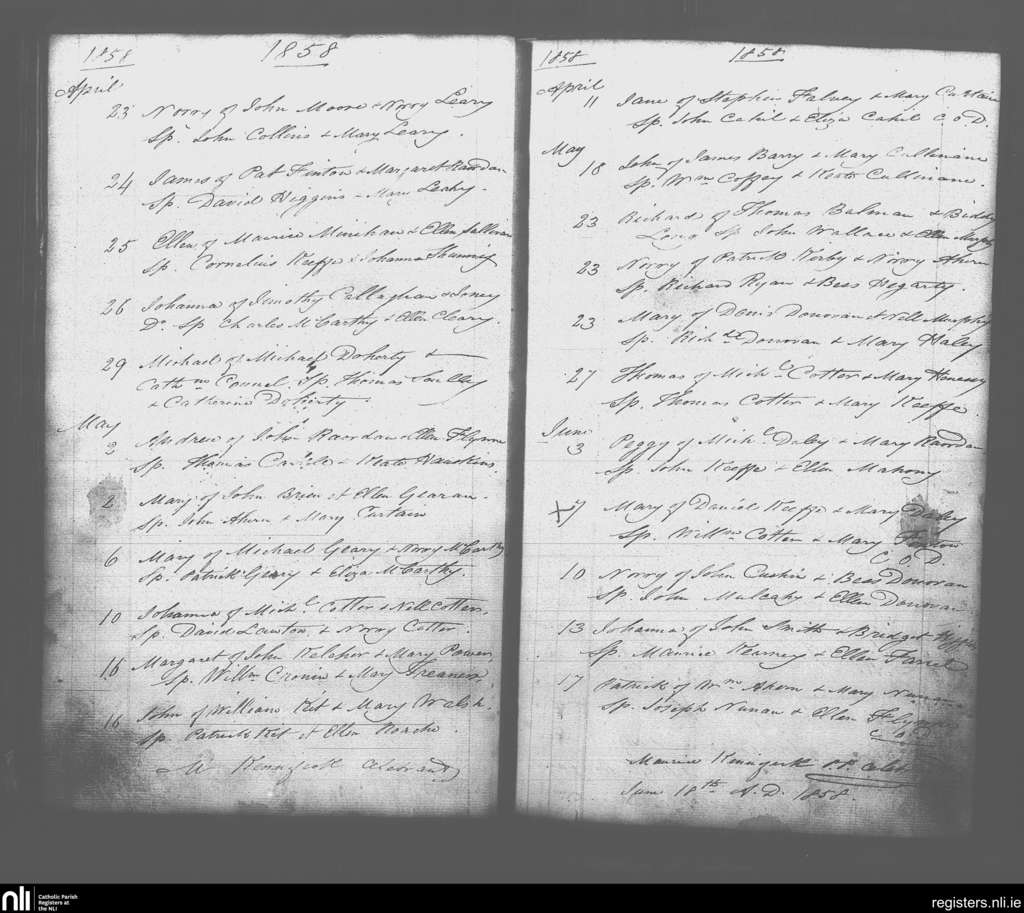 1858 1858
April
23 Norry of John Moore & Norry Leary
Sp. John Collins & Mary Leary.
24 James of Pat Finton & Margaret
Sp. David Higgins - Mary Leahy.
25 Ellen of Maurice Minihan & Ellen Sullivan
Sp. Cornelius Keeffe & Johanna
26 Johanna of Timothy Callaghan &
Do. Sp Charles McCarthy & Ellen Cleary.
29 Michael of Michael Doherty &
Cathne Connel. Sp. Thomas Sculley
& Catherine Doherty.
May
2 Andrew of John Reardan & Ellen Flynn
Sp. Thomas & Kate Hawkins.
2 Mary of John Brien & Ellen Gearan.
Sp. John Ahern & Mary Curtain
6 Mary of Michael Geary & Norry McCarthy
Sp. Patrick Geary & Eliza McCarthy.
10 Johanna of Michl Cotter & Nell Cotter.
Sp. David Lawton & Norry Cotter.
15 Margaret of John Kelcher & Mary Power,
Sp. Willm Cronin & Mary
16 John of William Kit & Mary Walsh.
Sp. Patrick Kit & Ellen Roache.
M Kennifeck Celebrant
1858 1858
April
11 Jane of Stephen Falvey & Mary Curtain
Sp. John Cahil & Eliza Cahil C.O.D.
May
18 John of James Barry & Mary Cullinane
Sp. Wm Coffey & Kate Cullinane.
23 Richard of Thomas Balman & Biddy
Long Sp John Wallace & Ellen Murphy
23 Norry of Patrick Kirby & Norry Ahern
Sp. Richard Ryan & Bess Hegarty.
23 Mary of Denis Donovan & Nell Murphy
Sp. Richd Donovan & Mary Haley
27 Thomas of Michl Cotter & Mary Henessy
Sp. Thomas Cotter & Mary Keeffe.
June
3 Peggy of Michl Daley & Mary Reardan
Sp John Keeffe & Ellen Mahony
X 7 Mary of Daniel Keeffe & Mary Daley
Sp. Willm Cotter & Mary
C.O.D.
10 Norry of John Cuskin & Bess Donovan
Sp. John Mulcahy & Ellen Donovan
13 Johanna of John Smith & Bridget
Sp. Maurice Kearney & Ellen Farrel
17 Patrick of Wm Ahern & Mary Nunan
Sp. Joseph Nunan & Ellen
C.O.D.
Maurice Kennifeck P.P. Celebt
June 18th A.D. 1858.
nli Catholic Parish
Registers at
the NLI
registers.nli.ie